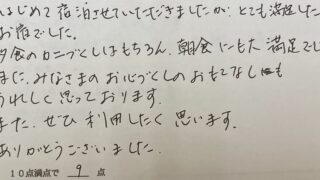 はじめて宿泊させていただきましたが、とても満足した
お宿でした。
夕食のカニづくしはもちろん、朝食にも大満足でし
また、みなさまのお心づくしのおもてなしも
うれしく思っております。
また、ぜひ利用したく思います。
ありがとうございました。
10点満点で 9 点